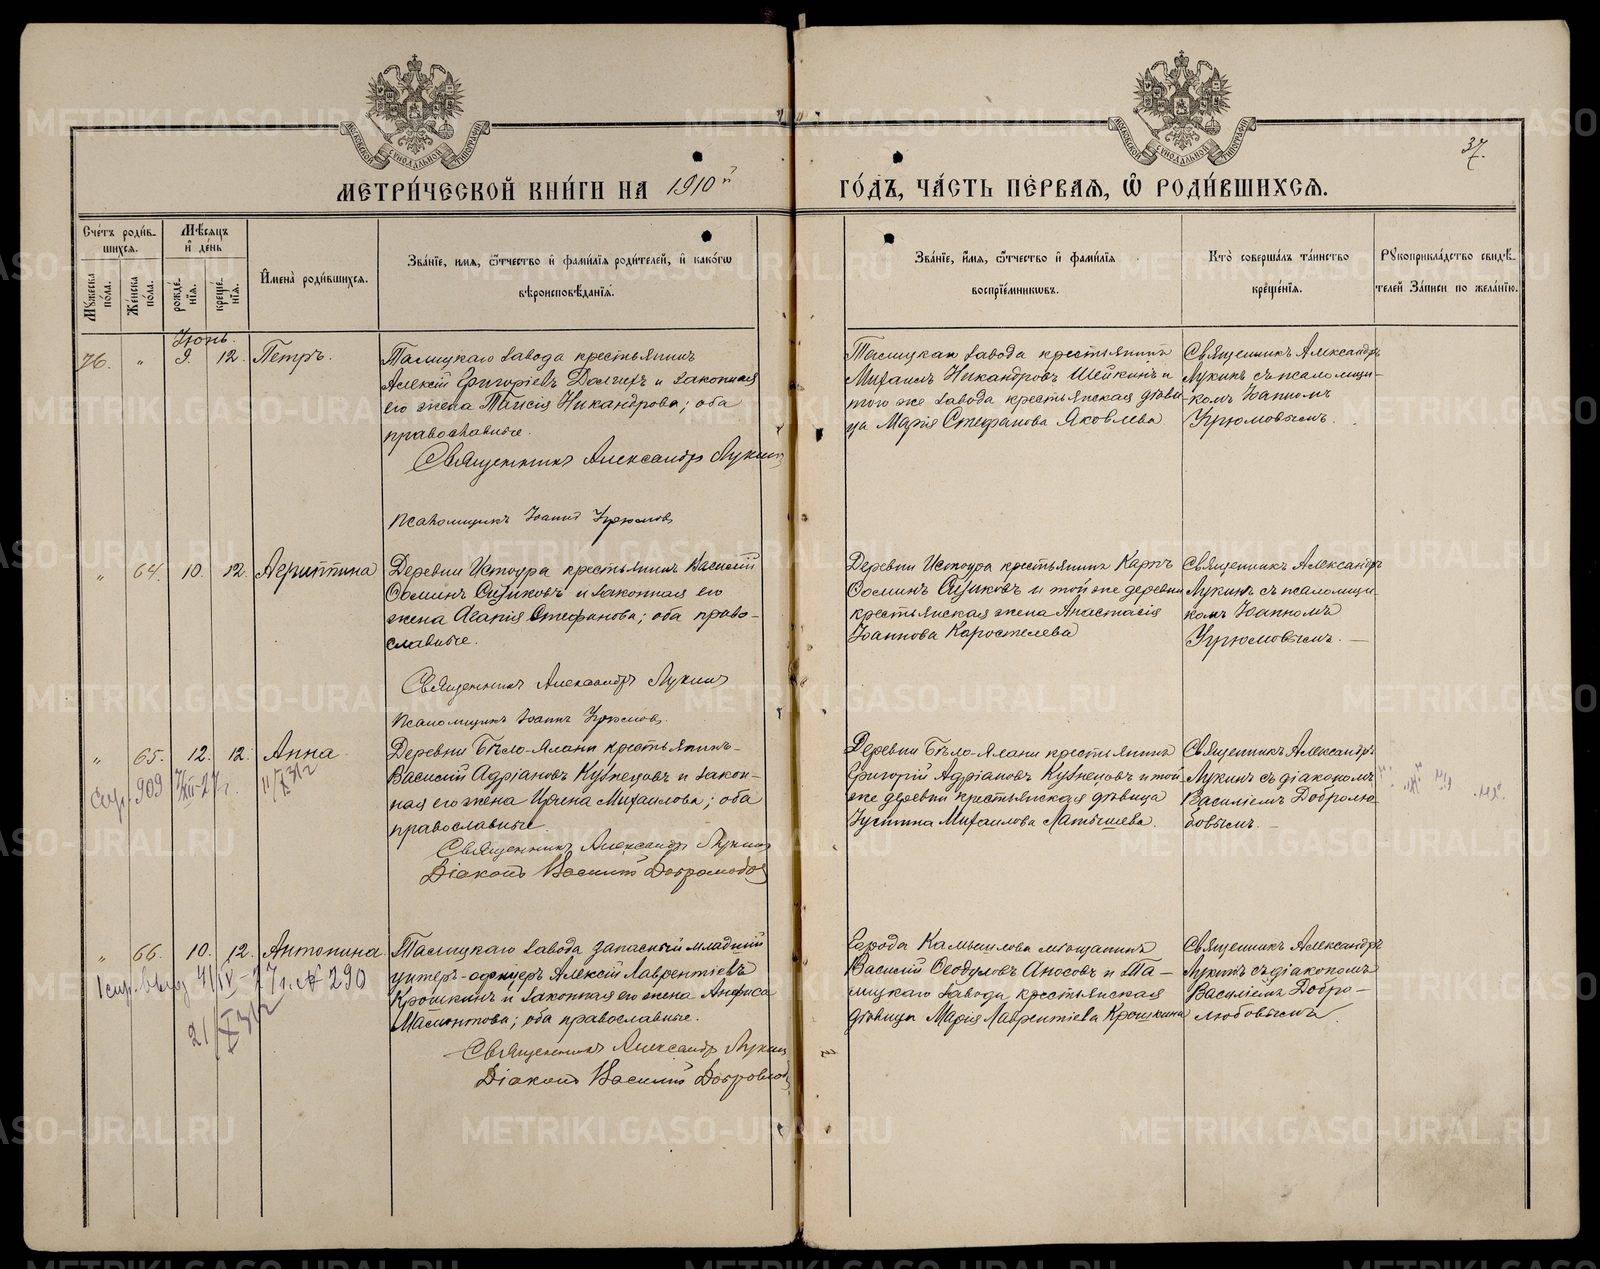 МЕТРИ́ЧЕСКОЙ КНИ́ГИ НА 1910й
ГО́ДЪ, ЧА́СТЬ ПЕ́РВАЯ, Ѽ РОДИ́ВШИХСЯ.
37.
Сче́тъ роди́в-
шихся.
Мѣ́сяцъ
и҆ де́нь
Мꙋ́жеска по́ла.
Же́нска по́ла.
рожде́-
нїя.
креще́-
нїя.
И҆мена̀ роди́вшихся.
Зва́нїе, имя, ѻ҆́тчество и҆ фами́лїя роди́телей, и҆ како́гѡ
вѣроисповѣ́данїя.
Зва́нїе, и҆́мя, ѻ҆́тчество и҆ фами́лїя
воспрїе́мникѡвъ.
Кто̀ соверша́лъ та́инство
креще́нїя.
Рꙋкоприкла́дство свидѣ́-
телей за́писи по жела́нїю.
Іюнь.
76. " 9. 12. Петръ.
Талицкаго завода крестьянинъ
Алексій Григоріевъ Долгихъ и законная
его жена Таисія Никандрова; оба
православные.
Священникъ Александръ Лукинъ
Псаломщикъ Іоаннъ Угрюмовъ
Талицкаго завода крестьянинъ
Михаилъ Никандровъ Шейкинъ и
того же завода крестьянская дѣви-
ца Марія Стефанова Яковлева
Священникъ Александръ
Лукинъ съ псаломщи-
комъ Іоанномъ
Угрюмовымъ.
" 64. 10. 12. Агриппина
Деревни Истоура крестьянинъ Василій
Ѳоминъ и законная его
жена Агапія Стефанова; оба право-
славные.
Священникъ Александръ Лукинъ
Псаломщикъ Іоаннъ Угрюмовъ.
Деревни Истоура крестьянинъ Карпъ
Ѳоминъ и той же деревни
крестьянская жена Анастасія
Іоаннова Коростелева
Священникъ Александръ
Лукинъ съ псаломщи-
комъ Іоанномъ
Угрюмовымъ.
" 65. 12. 12. Анна
909
Деревни Бѣло-Елани крестьянинъ
Василій Адріановъ Кузнецовъ и закон-
ная его жена Ирина Михаилова; оба
православные.
Священникъ Александръ Лукинъ
Діаконъ Василій Добролюбовъ
Деревни Бѣло-Елани крестьянинъ
Григорій Адріановъ Кузнецовъ и той
же деревни крестьянская дѣвица
Іустина Михаилова Латышева.
Священникъ Александръ
Лукинъ съ діакономъ
Василіемъ Добролю-
бовымъ.
" 66. 10. 12. Антонина
4/IV-27 г. № 290
21/X 31 г
Талицкаго завода запасный младшій
унтеръ-офицеръ Алексій Лаврентіевъ
Крошкинъ и законная его жена Анфиса
Мамонтова; оба православные.
Священникъ Александръ Лукинъ
Діаконъ Василій Добролюбовъ
Города Камышлова мѣщанинъ
Василій Ѳеодуловъ Аносовъ и Та-
лицкаго завода крестьянская
дѣвица Марія Лаврентіева Крошкина
Священникъ Александръ
Лукинъ съ діакономъ
Василіемъ Добро-
любовымъ.
METRIKI.GASO-URAL.RU